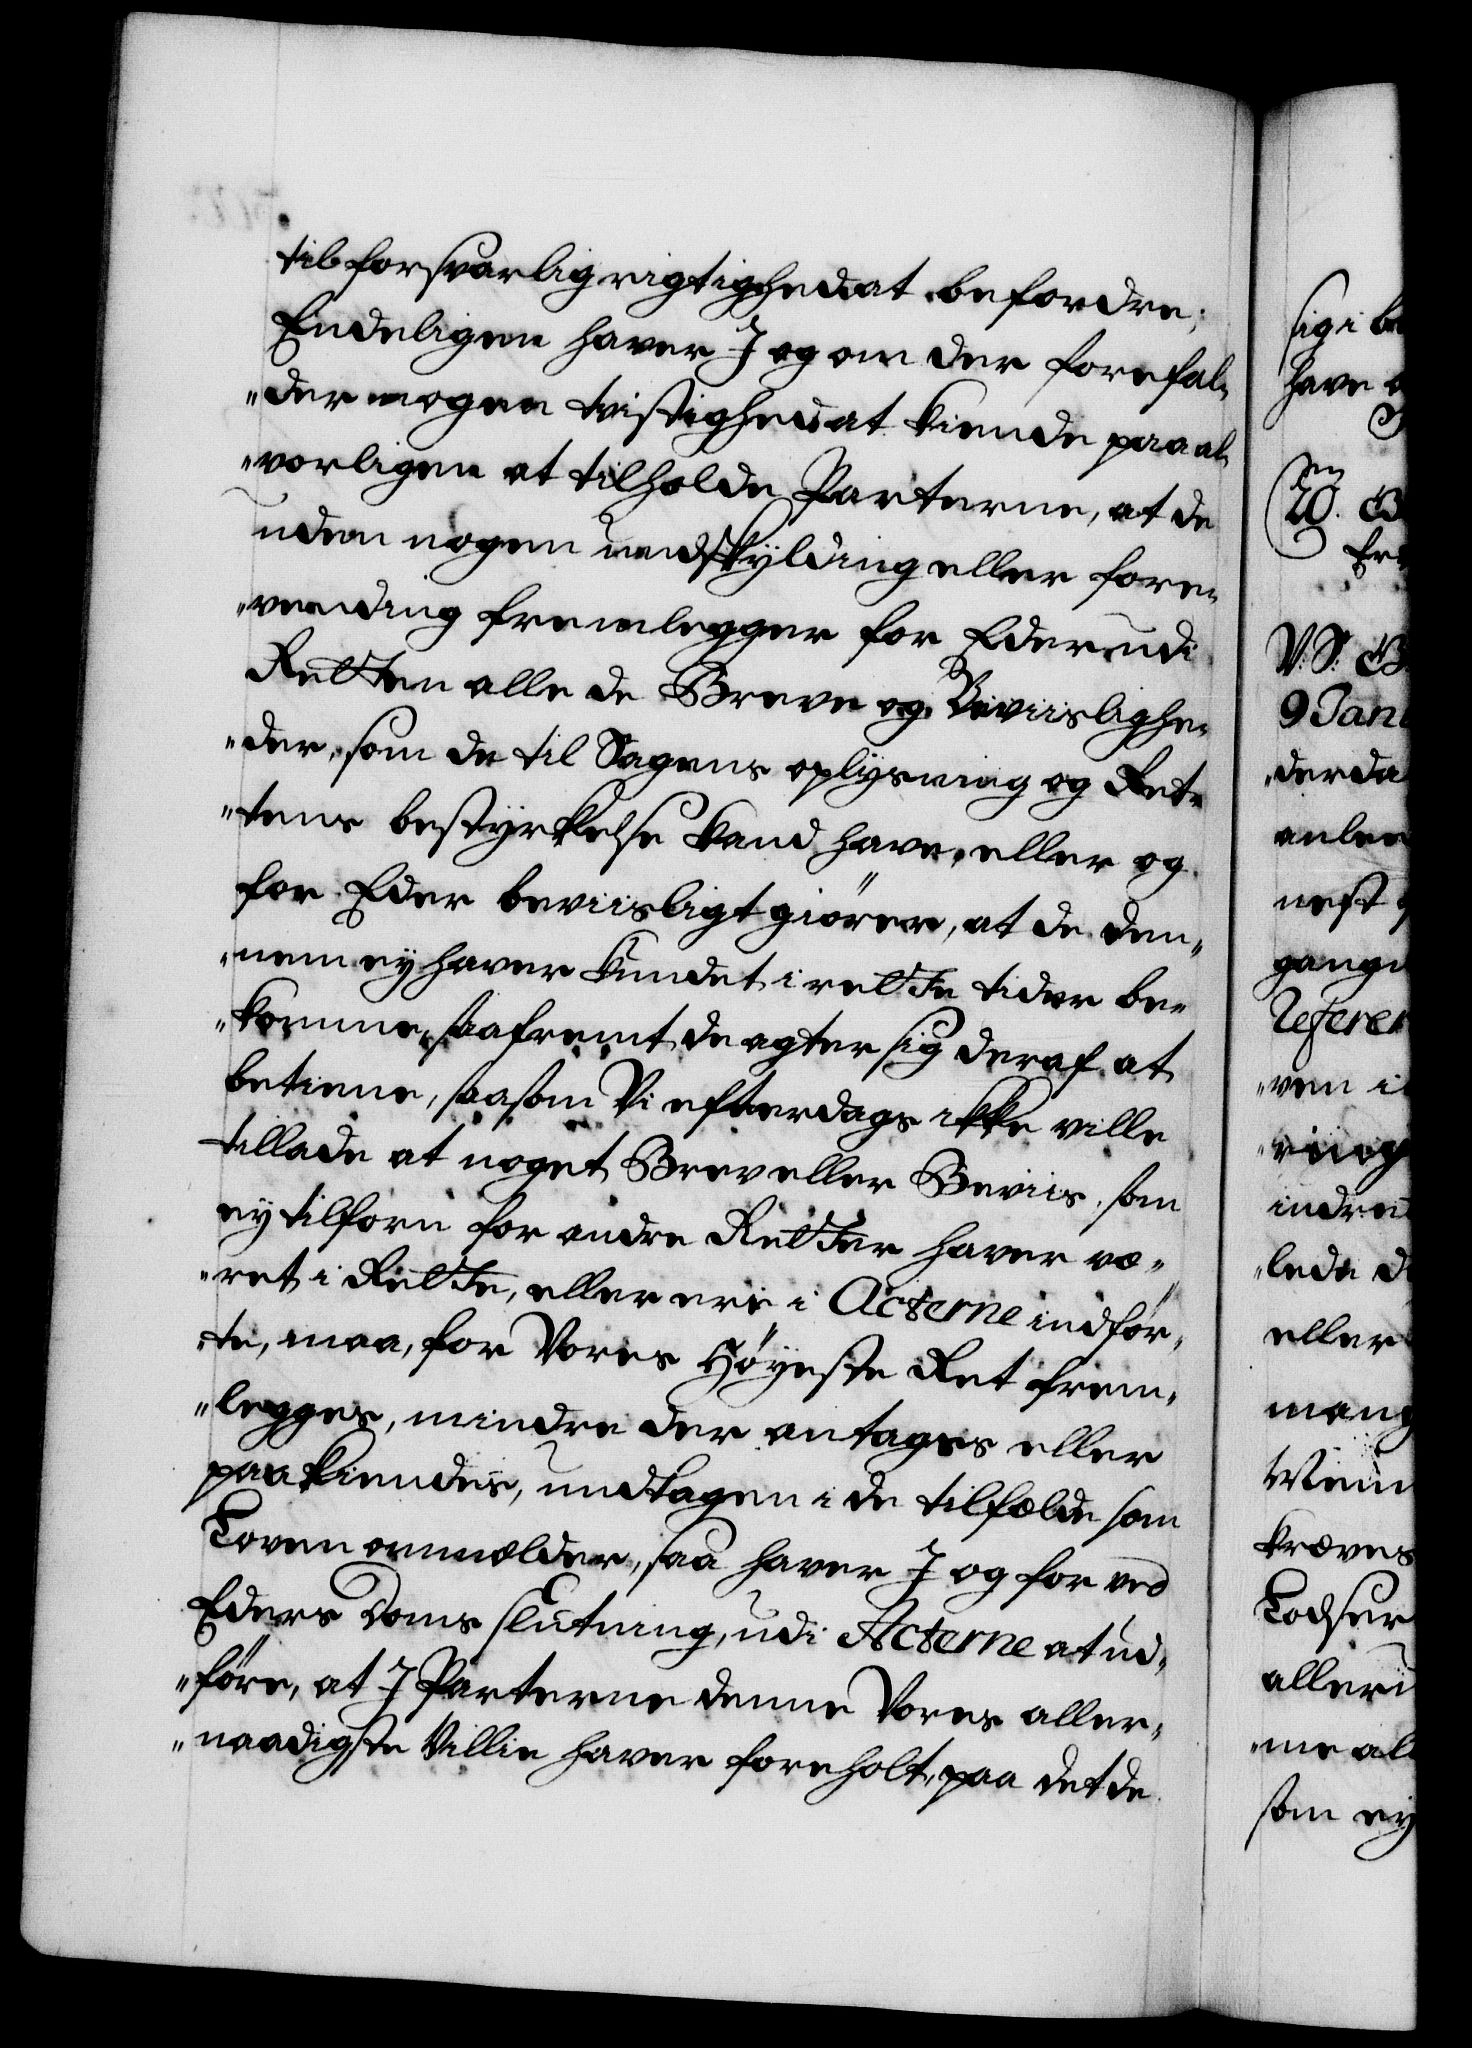 til forsvarlig rigtighed at befordre;
Endeligen haver I og om der forefal-
"der nogen tvistighed at kiende paa al-
"vorligen at tilholde Parterne, at de
uden nogen undskylding eller fore-
"vending fremlegger for Eder udi
Retten alle de Breve og Beviislighe-
"der, som de til Sagens oplysning og Ret-
"tens bestyrkelse kand have, eller og
for Eder beviisligt giører, at de den-
"nem ey haver kundet i rette tider be-
"komme, saafremt de agter sig deraf at
betiene, saasom Vi efterdags ikke ville
tillade at noget Brev eller Beviis, som
ey tilforn for andre Retter haver væ-
"ret i Rette, eller ere i Acterne indför-
"te, maa, for Vores Höyeste Ret frem-
"legges, mindre der antages eller
paakiendes, undtagen i de tilfælde som
Loven ommelder, saa haver I og for ved
Eders Doms slutning, udi Acterne at ud-
"føre, at I Parterne denne Vores aller-
"naadigste Villie haver foreholt, paa det de
sig i be
have
20.
V: S:
9 Jan
"derda
anlee
nest
gange
Referer
"ven i
indre
"lede d
eller
mang
kræves
Lodser
alleru
"me al
som ey